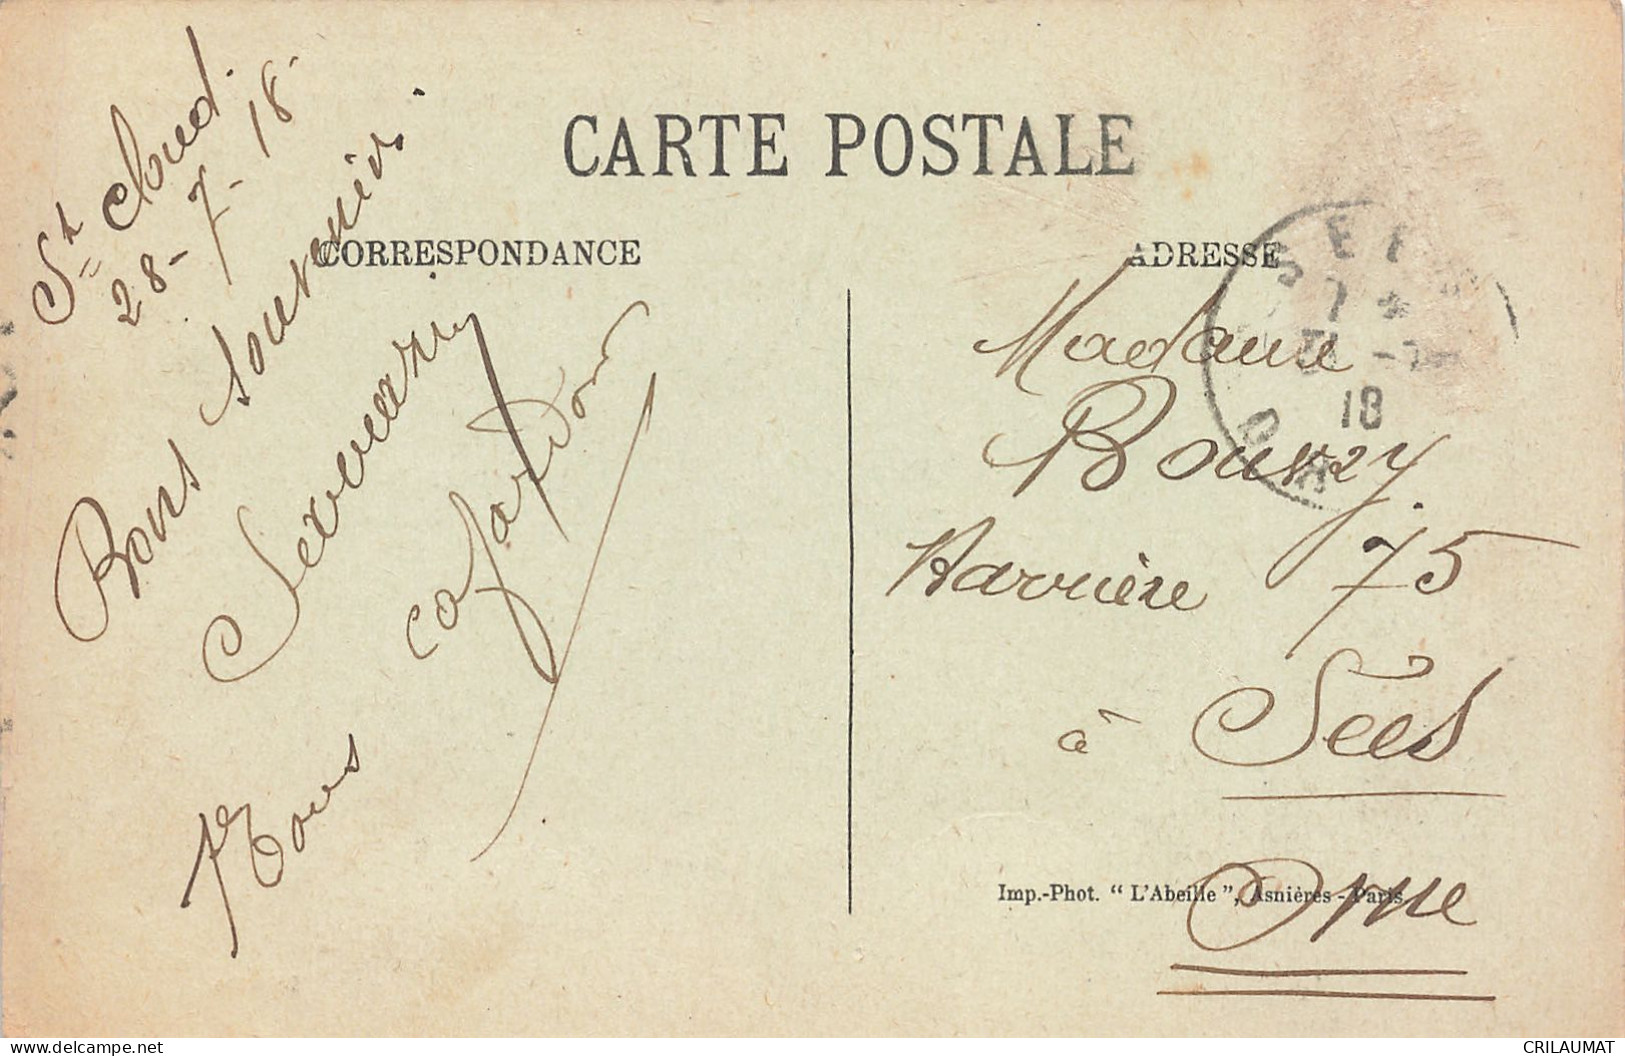 CARTE POSTALE
CORRESPONDANCE
ADRESSE
St Cloud.
28-7-18.
Bons souvenirs.
Tous
Madame
Bouvry.
75
à Sées
Orne
Imp.-Phot. “ L'Abeille ”, Asnières - Paris
18
delcampe.net
CRILAUMAT